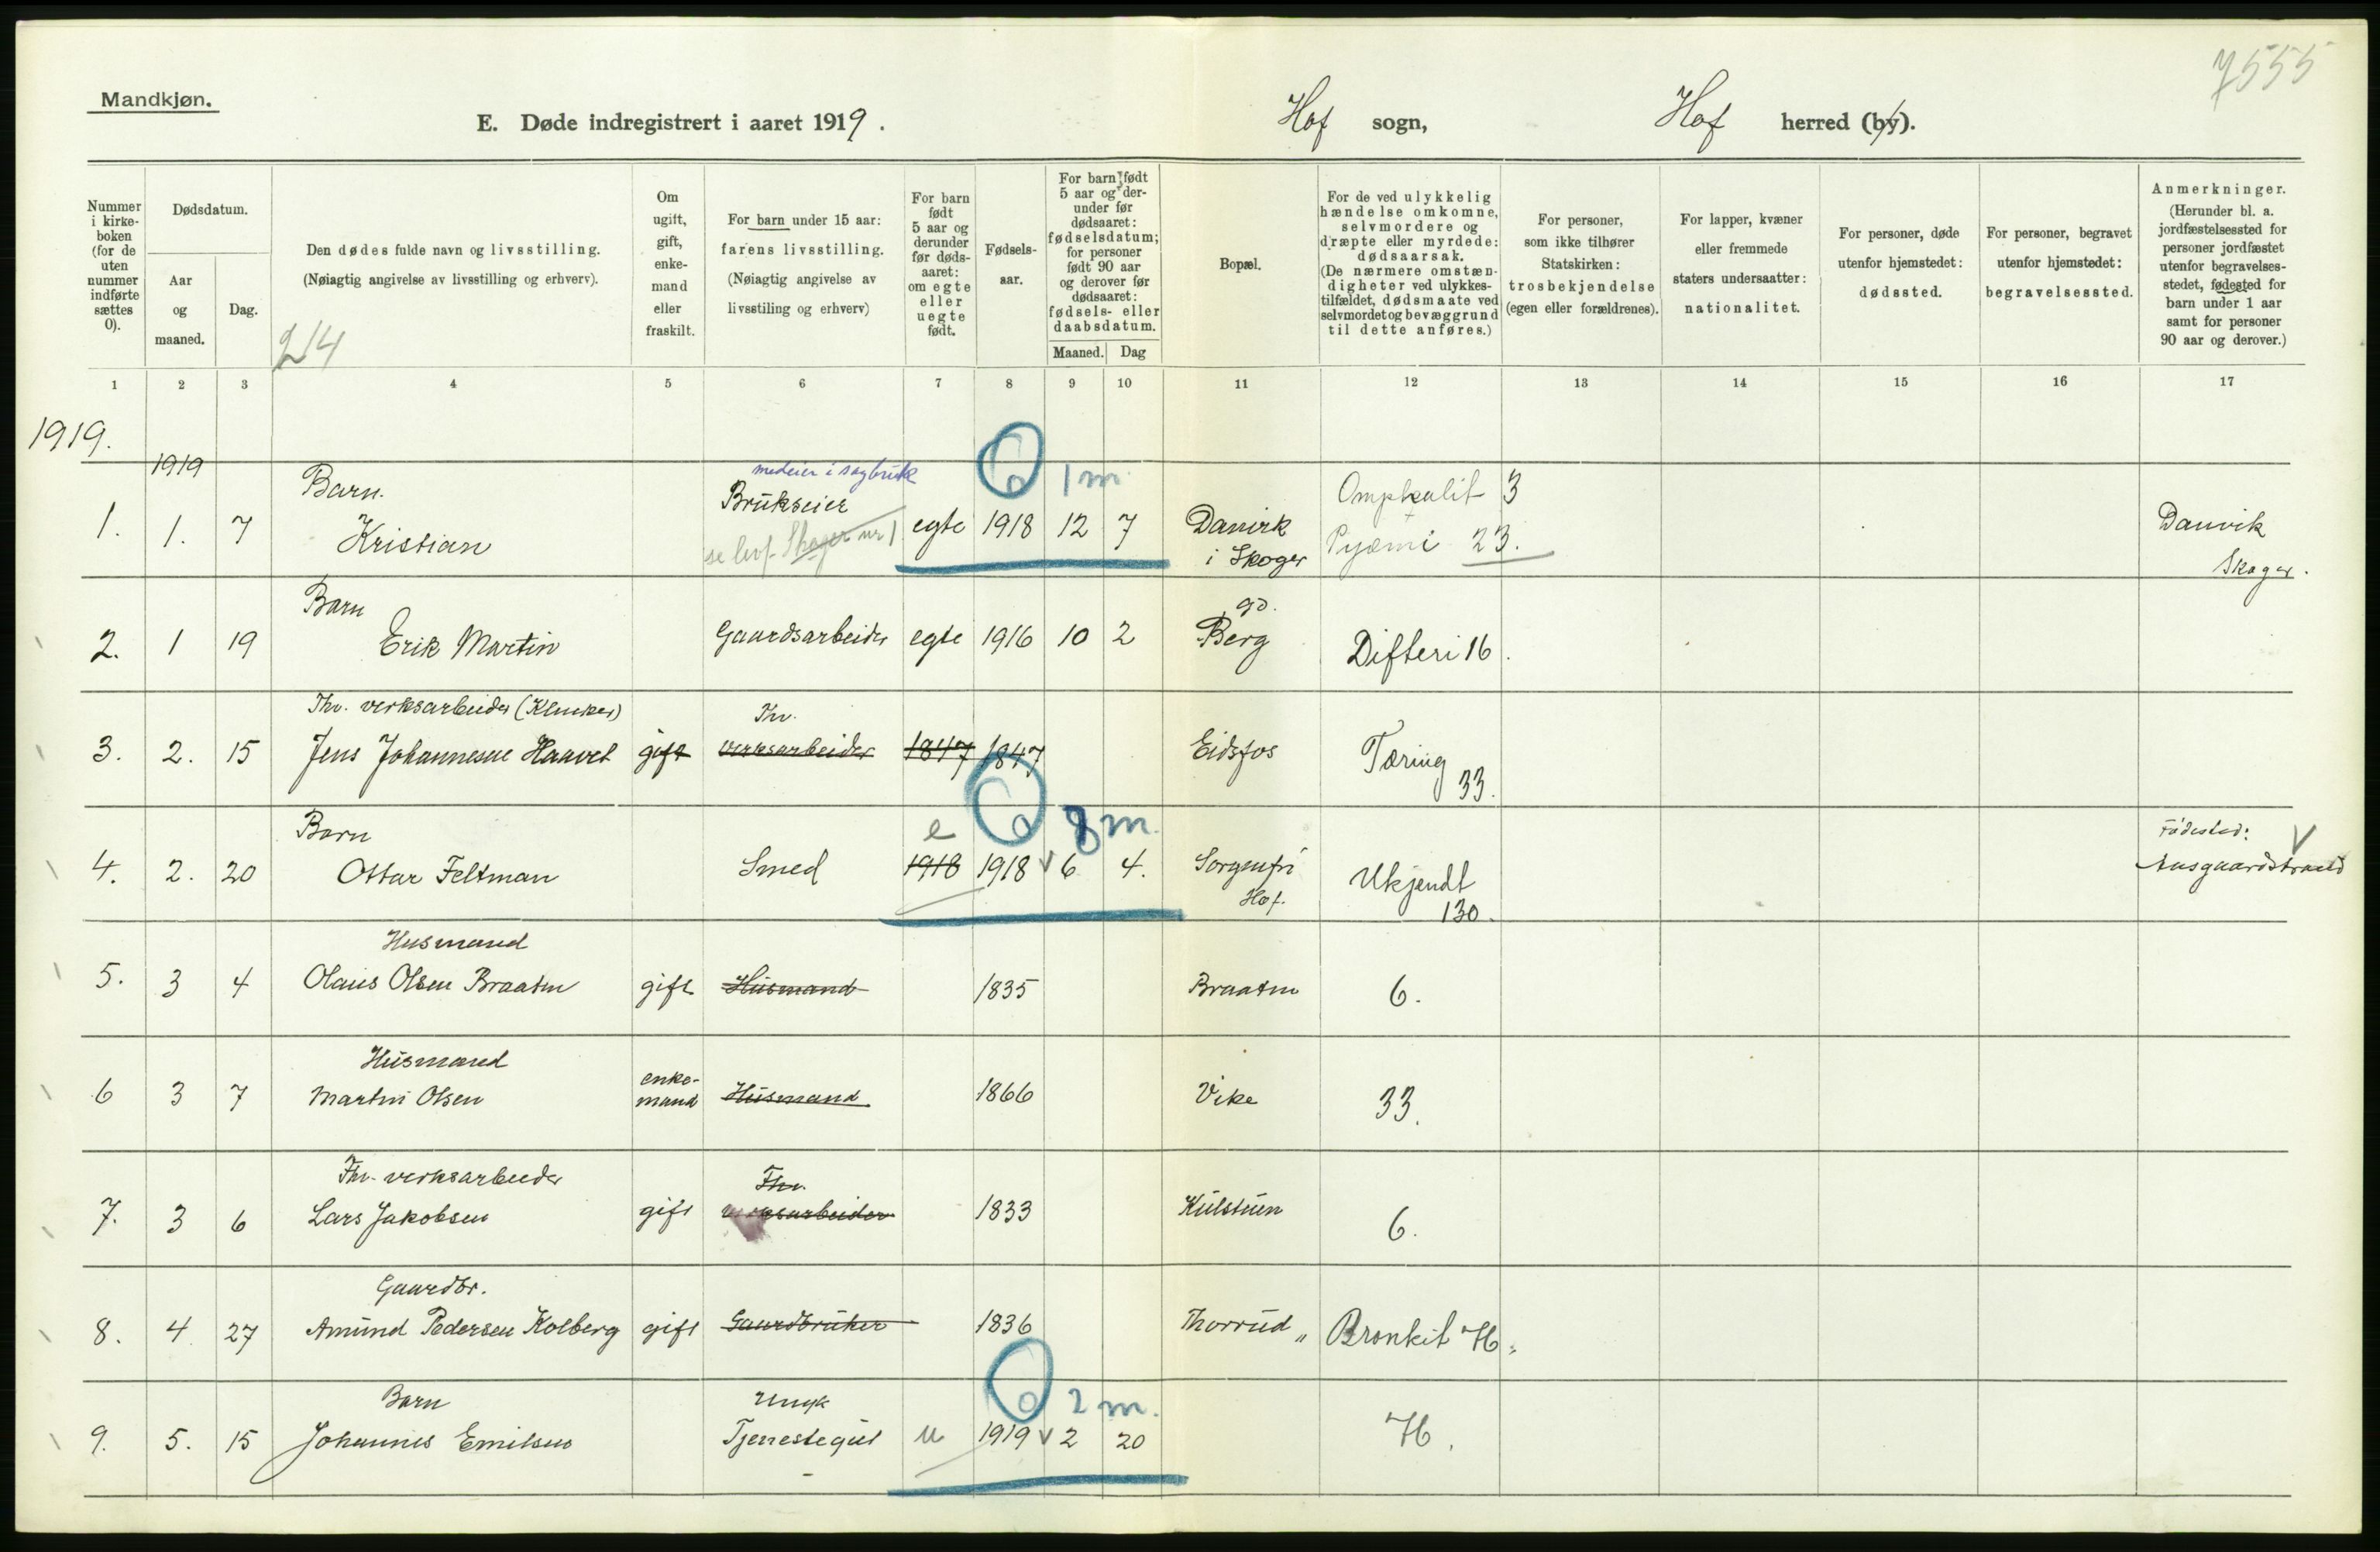 7555
Mandkjøn.
E. Døde indregistrert i aaret 1919.
Hof sogn, Hof herred (by).
Nummer i kirkeboken (for de uten nummer indførte sættes 0).
Dødsdatum.
Aar og maaned.
Dag.
Den dødes fulde navn og livsstilling.
(Nøiagtig angivelse av livsstilling og erhverv).
214
Om ugift, gift, enkemand eller fraskilt.
For barn under 15 aar:
farens livsstilling.
(Nøiagtig angivelse av livsstiling og erhverv)
For barn født 5 aar og derunder før dødsaaret: om egte eller uegte født.
Fødselsaar.
For barn født 5 aar og derunder før dødsaaret: fødselsdatum; for personer født 90 aar og derover før dødsaaret: fødsels- eller daabsdatum.
Maaned. Dag
Bopæl.
For de ved ulykkelig hændelse omkomne, selvmordere og dræpte eller myrdede: dødsaarsak.
(De nærmere omstændigheter ved ulykkestilfældet, dødsmaate ved selvmordet og bevæggrund til dette anføres.)
For personer, som ikke tilhører Statskirken: trosbekjendelse (egen eller forældrenes).
For lapper, kvæner eller fremmede staters undersaatter: nationalitet.
For personer, døde utenfor hjemstedet: dødssted.
For personer, begravet utenfor hjemstedet: begravelsessted.
Anmerkninger.
(Herunder bl. a. jordfæstelsessted for personer jordfæstet utenfor begravelsesstedet, fødested for barn under 1 aar samt for personer 90 aar og derover.)
1 2 3 4 5 6 7 8 9 10 11 12 13 14 15 16 17
1919.
1919
Barn. medeier i sagbruk 1 m. Omphalit 3
1. 1. 7 Kristian Brukseier egte 1918 12 7 Danvik i Skoger Pyæmi 23. Danvik Skoger.
Skoger nr 1
Barn gd.
2. 1 19 Erik Martin Gaardsarbeider egte 1916 10 2 Berg Difteri 16.
Fhv. verksarbeider (Klinker) Fhv.
3. 2. 15 Jens Johannesen Haavet gift verksarbeider 1847 1847 Eidsfos Tæring 33.
Barn e 8 m. Fødested:
4. 2. 20 Ottar Feltman Smed 1918 1918 v 6 4. Sorgenfri Hof. Ukjendt 130. Aasgaardstrand
Husmand
5. 3 4 Olaus Olsen Braaten gift Husmand 1835 Braaten 6.
Husmand
6 3 7 Martin Olsen enkemand Husmand 1866 Vike 33.
Fhv. verksarbeider Fhv.
7. 3 6 Lars Jakobsen gift verksarbeider 1833 Kulstuen 6.
Gaardbr.
8. 4 27 Amund Pedersen Kolberg gift Gaardbruker 1836 Thorrud „ Bronkit 46.
Barn Ungk 2 m.
9. 5. 15 Johannes Emilsen Tjenestegut u 1919 v 2 20 46.